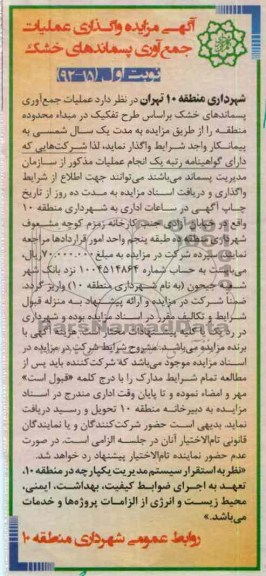 آگهی مزایده واگذاری عملیات
جمع‌آوری پسماندهای خشک
نوبت اول (۱۵-۹۲)
شهرداری منطقه ۱۰ تهران در نظر دارد عملیات جمع‌آوری
پسماندهای خشک براساس طرح تفکیک در مبداء محدوده
منطقه را از طریق مزایده به مدت یک سال شمسی به
پیمانکار واجد شرایط واگذار نماید، لذا شرکت‌هایی که
دارای گواهینامه رتبه یک انجام عملیات مذکور از سازمان
مدیریت پسماند می‌باشند می‌توانند جهت اطلاع از شرایط
واگذاری و دریافت اسناد مزایده به مدت ده روز از تاریخ
چاپ آگهی در ساعات اداری به شهرداری منطقه ۱۰
واقع در خیابان آزادی جنب کارخانه زمزم کوچه
شهرداری منطقه ده طبقه پنجم واحد امور قراردادها مراجعه
نمایند. سپرده شرکت در مزایده به مبلغ ۷۰،۰۰۰،۰۰۰ ریال
می‌بایست به حساب شماره ۱۰۰۴۵۱۴۸۶۴ نزد بانک شهر
شعبه جیحون (به نام شهرداری منطقه ۱۰) واریز گردد.
ضمناً شرکت در مزایده و ارائه پیشنهاد به منزله قبول
شرایط و تکالیف مقرر در اسناد مزایده بوده و شهرداری
در رد یا قبول کلیه پیشنهادات آگهی با
برنده مزایده می‌باشد. مشروح شرایط شرکت در مزایده در
اسناد مزایده موجود می‌باشد که شرکت‌کننده باید پس از
مطالعه تمام شرایط مدارک را با درج کلمه «قبول است»
مهر و امضاء نموده و تا پایان وقت اداری مندرج در اسناد
مزایده به دبیرخانه منطقه ۱۰ تحویل و رسید دریافت
نماید. بدیهی است حضور شرکت‌کنندگان و یا نمایندگان
قانونی تام‌الاختیار آنان در جلسه الزامی است. در صورت
عدم حضور نماینده تام‌الاختیار پیشنهاد رد خواهد شد.
«نظر به استقرار سیستم مدیریت یکپارچه در منطقه ۱۰،
تعهد به اجرای ضوابط کیفیت، بهداشت، ایمنی،
محیط زیست و انرژی از الزامات پروژه‌ها و خدمات
می‌باشد.»
روابط عمومی شهرداری منطقه ۱۰